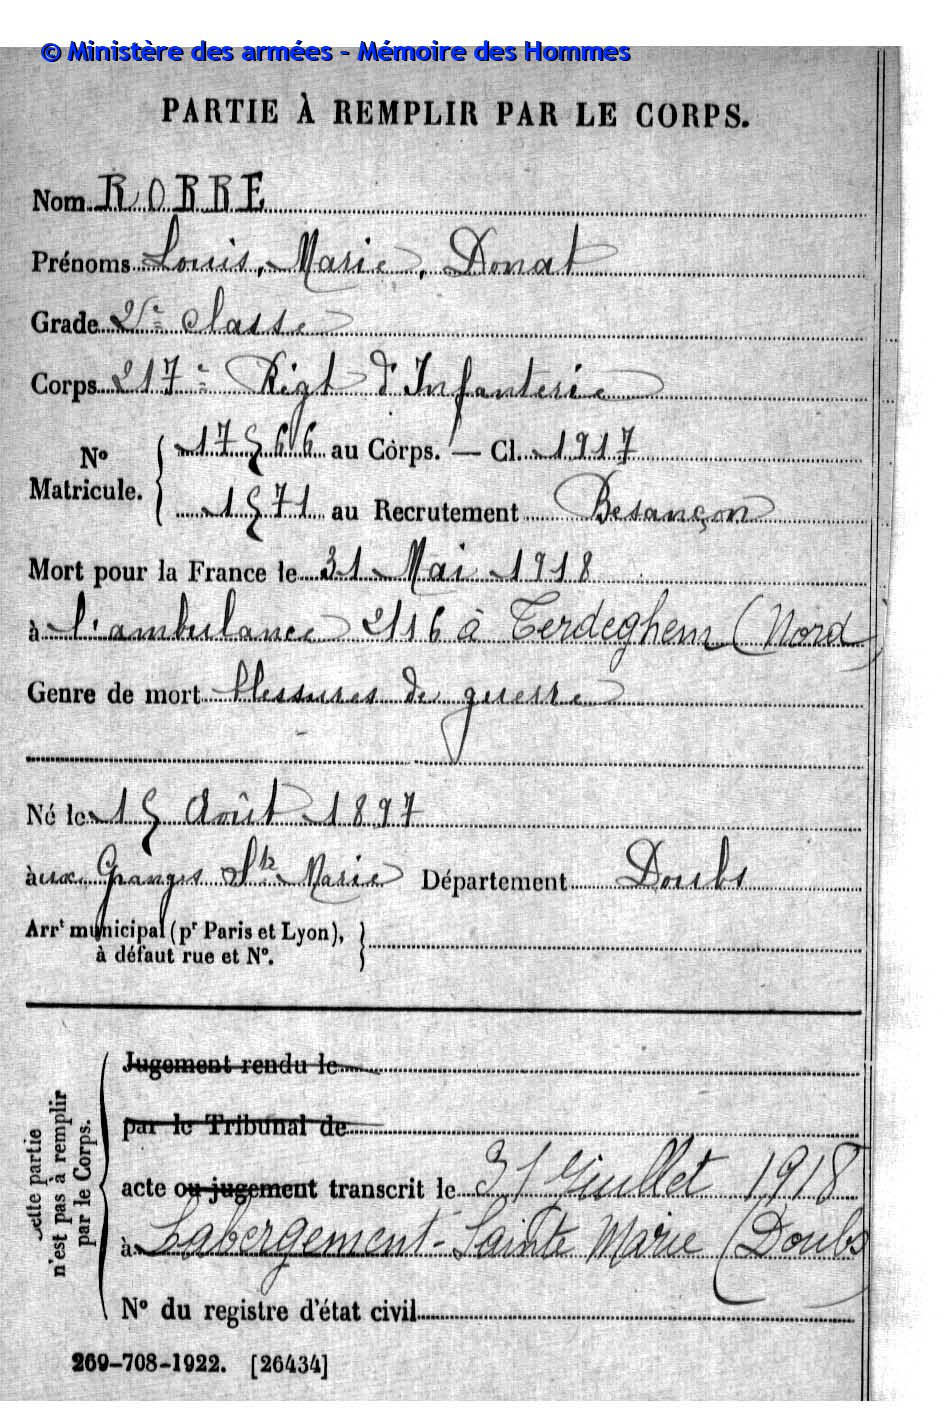 © Ministère des armées - Mémoire des Hommes
PARTIE À REMPLIR PAR LE CORPS.
Nom ROBBE
Prénoms Louis, Marie, Donat
Grade 2e classe
Corps 217e Régt d'Infanterie
No Matricule. { 17566 au Corps. — Cl. 1917
1571 au Recrutement Besançon
Mort pour la France le 31 Mai 1918
à l'ambulance 2116 à Terdeghem (Nord)
Genre de mort blessures de guerre
Né le 15 Août 1897
aux Granges Ste Marie Département Doubs
Arrt municipal (pr Paris et Lyon), }
à défaut rue et No.
Cette partie
n'est pas à remplir
par le Corps.
Jugement rendu le
par le Tribunal de
acte ou jugement transcrit le 31 Juillet 1918
à Labergement-Sainte Marie (Doubs)
No du registre d'état civil
269-708-1922. [26434]